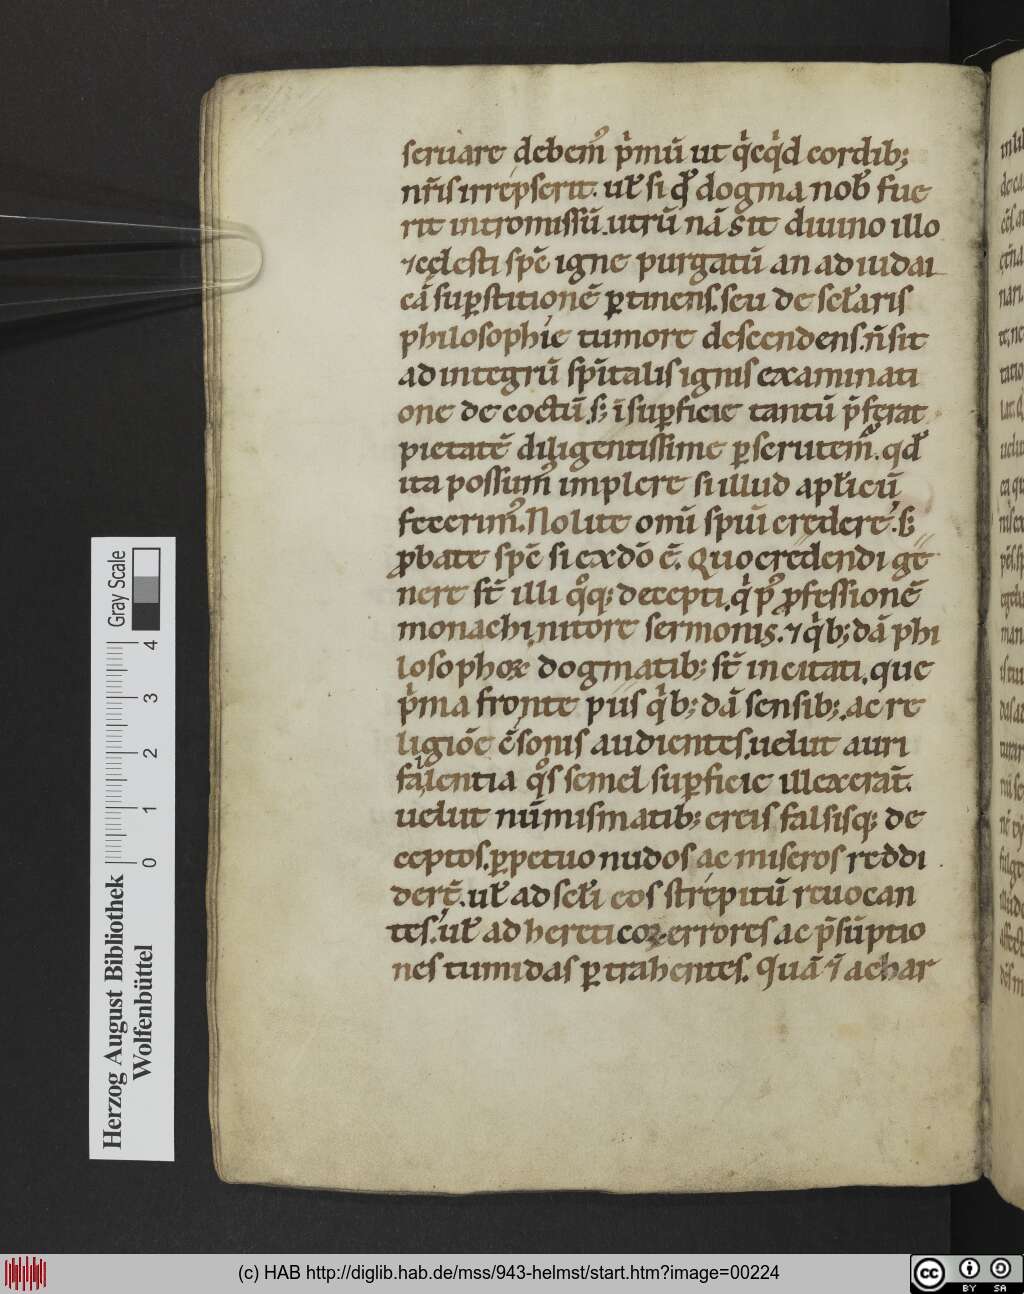 seruare debem᷒ pͥmū ut qͥcqͥd cordib;
nr̄is irrepserit. ul̄ si qd̄ dogma nob̄ fue
rit intromissū. utrū nā sit diuino illo
⁊ cęlesti spc̄ igne purgatū an ad iudai
cā suꝑstitionē ꝑtinens. seu de sel̄aris
philosophie tumore descendens. n̄ sit
ad integrū spi̅talis ignis examinati
one decoctū. s; ī suꝑficie tantū p̄ferat
pietatē diligentissime ꝑscrutem᷒. qd̄
ita possum᷒ implere si illud apl̄icū
fecerim᷒. Nolite omī spiu̅ credere. s;
ꝓbate spc̄ si ex dō ē. Quo credendi ge
nere st̄ illi qͦq; decepti. qͥ p᷒ ꝓfessionē
monachi nitore sermonis. ⁊ qͥb; dā phi
losophoꝝ dogmatib; st̄ incitati. que
pͥma fronte piis qͥb; dā sensib; ac re
ligiōe c̄sonis audientes. uelut auri
fallentia qͦs semel suꝑficie illexerat̄.
uelut nūmismatib; ereis falsisq; de
ceptos. ꝑpetuo nudos ac miseros reddi
derc̄. ul̄ ad sel̄i eos strepitū reuocan
tes. ul̄ ad hereticoꝝ errores ac p̄sūptio
nes tumidas ꝑtrahentes. Quā ⁊ı̄ achar
Gray Scale
4 3 2 1 0
Herzog August Bibliothek
Wolfenbüttel
(c) HAB http://diglib.hab.de/mss/943-helmst/start.htm?image=00224
cc BY SA